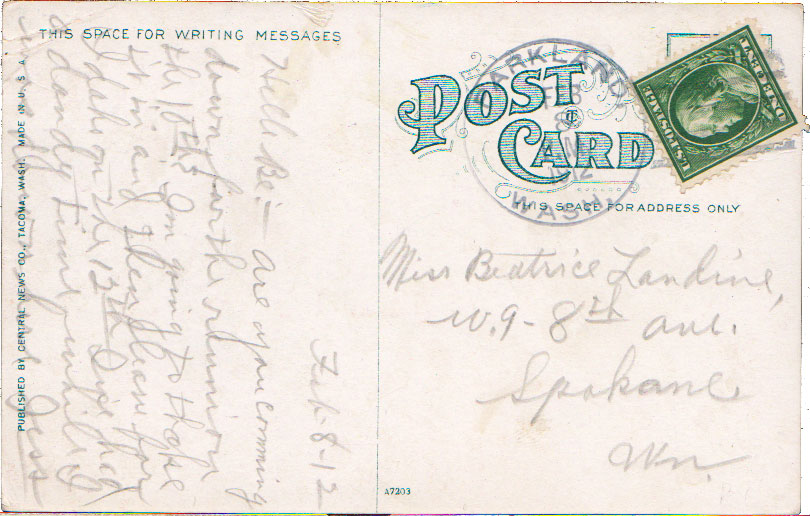 THIS SPACE FOR WRITING MESSAGES
Feb-8-12
Be:- are you comming
down for the reunion
the 10th. I'm going to Hope
it in and then leave for
on the 13th. Have had
a dandy time while I
Jess
PUBLISHED BY CENTRAL NEWS CO., TACOMA, WASH. MADE IN U. S. A
POST CARD
PARKLAND
FEB
8
1912
WASH.
U.S. POSTAGE
ONE CENT
THIS SPACE FOR ADDRESS ONLY
Miss Beatrice Landine,
W. 9 - 8th ave.
Spokane
Wn.
A7203